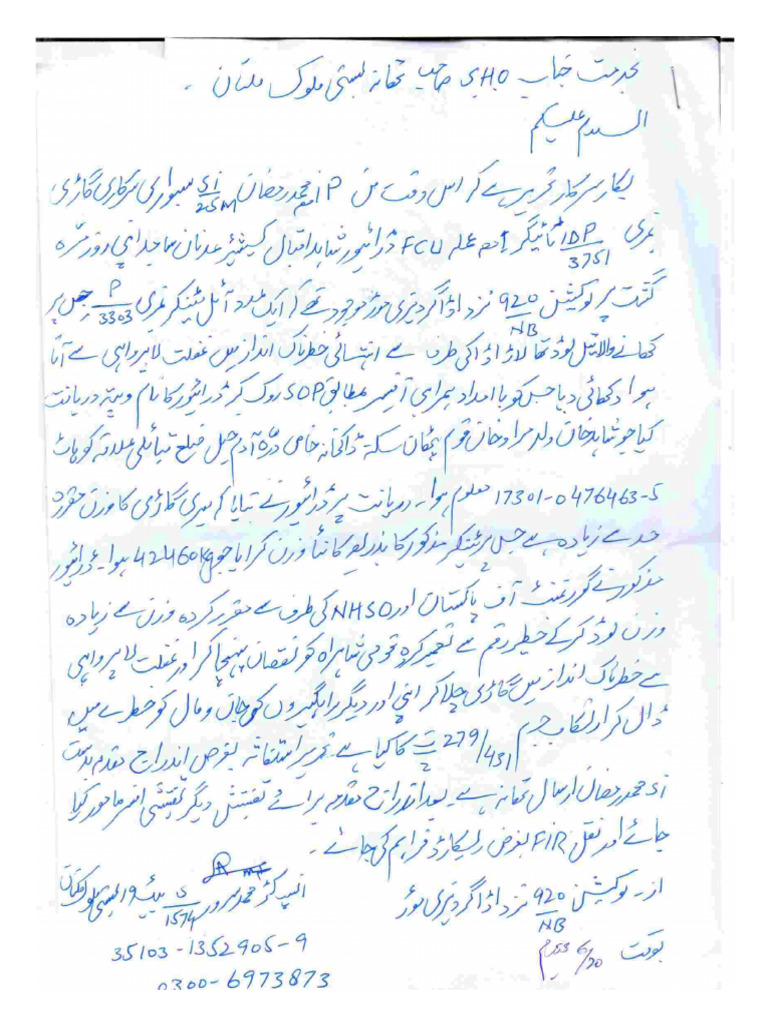 بخدمت جناب SHO صاحب تھانہ بستی ملوک ملتان ۔
السلام علیکم
بکار سرکار تحریر ہے کہ اس وقت من IP معہ محمد رمضان SI/25M بسواری سرکاری گاڑی
نمبری IDP/3751 ٹائیگر معہ عملہ FCU ڈرائیور شاہد اقبال کیشیئر عدنان ساجد اپنی روزمرہ
گشت پر لوکیشن 920/NB نزد اڈا گردیزی موڑ موجود تھے کہ ایک عدد آئل ٹینکر نمبری P/3303 جس پر
کھانے والا تیل لوڈ تھا لاڑ اڈا کی طرف سے انتہائی خطرناک انداز میں غفلت لاپرواہی سے آتا
ہوا دکھائی دیا جس کو با امداد ہمراہی آفیسر مطابق SOP روک کر ڈرائیور کا نام و پتہ دریافت
کیا جو شاہد خان ولد مراد خان قوم پٹھان سکنہ ڈاکخانہ خاص درہ آدم خیل ضلع قبائلی علاقہ کوہاٹ
17301-0476463-5 معلوم ہوا ۔ دریافت پر ڈرائیور نے بتایا کہ میری گاڑی کا وزن مقررہ
حد سے زیادہ ہے جس پر ٹینکر مذکور کا بذریعہ کانٹا وزن کرایا جو 42460kg ہوا ۔ ڈرائیور
مذکور نے گورنمنٹ آف پاکستان اور NHSO کی طرف سے مقرر کردہ وزن سے زیادہ
وزن لوڈ کر کے خطیر رقم سے تعمیر کردہ قومی شاہراہ کو نقصان پہنچا کر اور غفلت لاپرواہی
سے خطرناک انداز میں گاڑی چلا کر اپنی اور دیگر راہگیروں کی جان و مال کو خطرے میں
ڈال کر ارتکاب جرم 279/431 ت پ کا کیا ہے ۔ تحریر استغاثہ بغرض اندراج مقدمہ بدست
محمد رمضان SI ارسال تھانہ ہے ۔ بعد اندراج مقدمہ برائے تفتیش دیگر تفتیشی افسر مامور کیا
جائے اور نقل FIR بغرض ریکارڈ فراہم کی جائے ۔
از ۔ لوکیشن 920/NB نزد اڈا گردیزی موڑ
بوقت 6/20
انسپکٹر محمد سرور S/1574 بیٹ 19 بستی ملوک ملتان
35103-1352905-9
0300-6973873